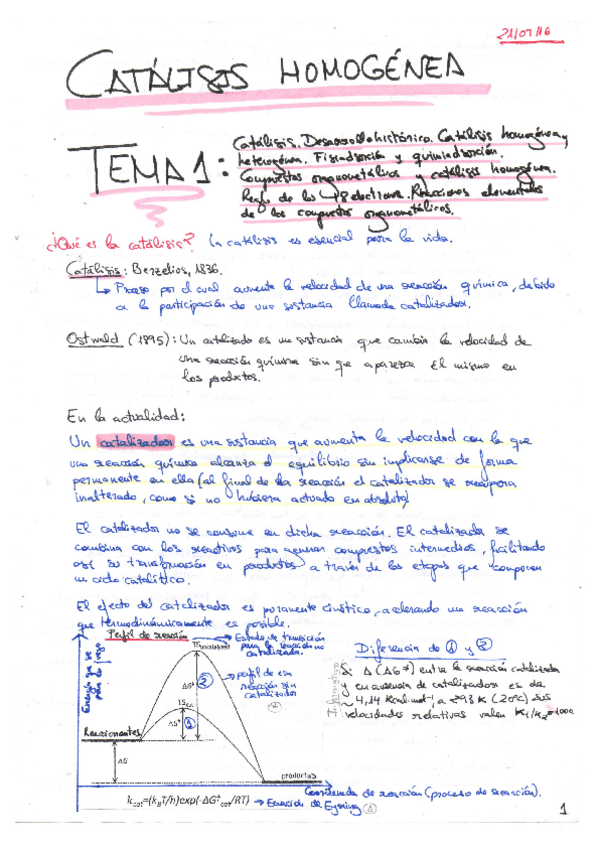 21/01/16
CATÁLISIS HOMOGÉNEA
TEMA 1: Catálisis. Desarrollo histórico. Catálisis homogénea y
heterogénea. Fisiadsorción y quimiadsorción.
Compuestos organometálicos y catálisis homogénea.
Regla de los 18 electrones. Reacciones elementales
de los compuestos organometálicos.
¿Qué es la catálisis? La catálisis es esencial para la vida.
Catálisis: Berzelius, 1836.
↳ Proceso por el cual aumenta la velocidad de una reacción química, debido
a la participación de una sustancia llamada catalizador.
Ostwald (1895): Un catalizado es un sustancia que cambia la velocidad de
una reacción química sin que aparezca él mismo en
los productos.
En la actualidad:
Un catalizador es una sustancia que aumenta la velocidad con la que
una reacción química alcanza el equilibrio sin implicarse de forma
permanente en ella (al final de la reacción el catalizador se recupera
inalterado, como si no hubiera actuado en absoluto)
El catalizador no se consume en dicha reacción. El catalizador se
combina con los reactivos para generar compuestos intermedios, facilitando
así su transformación en productos a través de las etapas que componen
un ciclo catalítico.
El efecto del catalizador es puramente cinético, acelerando una reacción
que termodinámicamente es posible.
Perfil de reacción
→ Estado de transición
para la reacción no
catalizada.
Energía que se
pone en juego
ΔG‡
②
→ perfil de esa
reacción sin
catalizador
TScat
ΔG‡
①
Reaccionantes
ΔG
productos
Coordenada de reacción (proceso de reacción).
kcat=(kBT/h)exp(-ΔG‡cat/RT) → Ecuación de Eyring
Diferencia de ① y ②
Informativo
Si Δ(ΔG‡) entre la reacción catalizada
y en ausencia de catalizadores es de
~ 4,14 Kcal·mol⁻¹ a 293 K (20ºC) sus
velocidades relativas valen K1/K2=1000
1